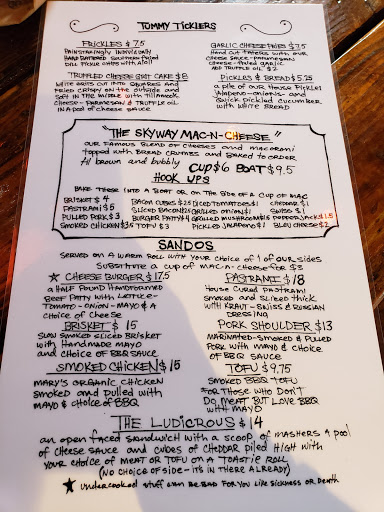 TOMMY TICKLERS
FRICKLES $7.5
PAINSTAKINGLY INDIVIDUALLY
HAND BATTERED SOUTHERN FRIED
DILL PICKLE CHIPS WITH AIOLI
GARLIC CHEESE FRIES $7.5
HAND CUT TATERS WITH OUR
CHEESE SAUCE - PARMESEAN
CHEESE - FRIED GARLIC
ADD TRUFFLE OIL $2
TRUFFLED CHEESE GRIT CAKE $8
WHITE GRITS CUT INTO SQUARES AND
FRIED CRISPY ON THE OUTSIDE AND
SOFT IN THE MIDDLE WITH TILLAMOOK
CHEESE - PARMESEAN & TRUFFLE OIL
IN A POOL OF CHEESE SAUCE
PICKLES & BREAD $5.25
A PILE OF OUR HOUSE PICKLED
JALAPENO - ONIONS - AND
QUICK PICKLED CUCUMBER
WITH WHITE BREAD
"THE SKYWAY MAC-N-CHEESE"
OUR FAMOUS BLEND OF CHEESES AND MACARONI
TOPPED WITH BREAD CRUMBS AND BAKED TO ORDER
TIL BROWN AND BUBBLY CUP $6 BOAT $9.5
HOOK UPS
BAKE THESE INTO A BOAT OR ON THE SIDE OF A CUP OF MAC
BRISKET $4 BACON CUBES $2.5 SLICED TOMATOES $1 CHEDDAR $1
PASTRAMI $5 SLICED BACON $2.5 GRILLED ONIONS $1 SWISS $1
PULLED PORK $3 BURGER PATTY $4 GRILLED MUSHROOMS $2 PEPPER JACK $1.5
SMOKED CHICKEN $3.5 TOFU $3 PICKLED JALAPENO $1 BLEU CHEESE $2
SANDOS
SERVED ON A WARM ROLL WITH YOUR CHOICE OF 1 OF OUR SIDES
SUBSTITUTE A CUP OF MAC-N-CHEESE FOR $3
★ CHEESE BURGER $17.5
A HALF POUND HANDFORMED
BEEF PATTY WITH LETTUCE -
TOMATO - ONION - MAYO & A
CHOICE OF CHEESE
PASTRAMI $18
HOUSE CURED PASTRAMI
SMOKED AND SLICED THICK
WITH KRAUT - SWISS & RUSSIAN
DRESSING
BRISKET $15
SLOW SMOKED SLICED BRISKET
WITH HANDMADE MAYO
AND CHOICE OF BBQ SAUCE
PORK SHOULDER $13
MARINATED - SMOKED & PULLED
PORK WITH MAYO & CHOICE
OF BBQ SAUCE
SMOKED CHICKEN $15
MARY'S ORGANIC CHICKEN
SMOKED AND PULLED WITH
MAYO & CHOICE OF BBQ
TOFU $9.75
SMOKED BBQ TOFU
FOR THOSE WHO DON'T
DO MEAT BUT LOVE BBQ
WITH MAYO
THE LUDICROUS $14
AN OPEN FACED SANDWICH WITH A SCOOP OF MASHERS A POOL
OF CHEESE SAUCE AND CUBES OF CHEDDAR PILED HIGH WITH
YOUR CHOICE OF MEAT OR TOFU ON A TOASTIE ROLL
(NO CHOICE OF SIDE - IT'S IN THERE ALREADY)
★ UNDERCOOKED STUFF CAN BE BAD FOR YOU LIKE SICKNESS OR DEATH